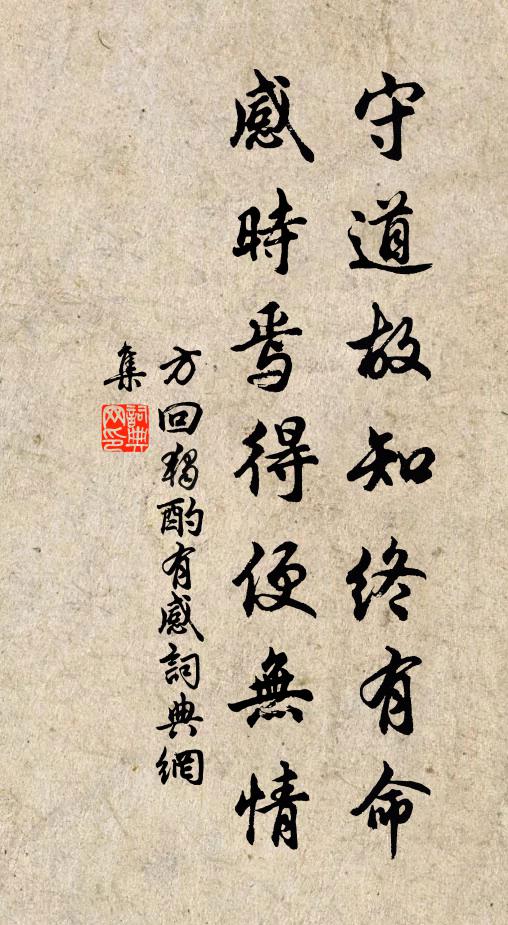 守道故知終有命
感時焉得便無情
方回獨酌有感詞典網
集
詞典
网印